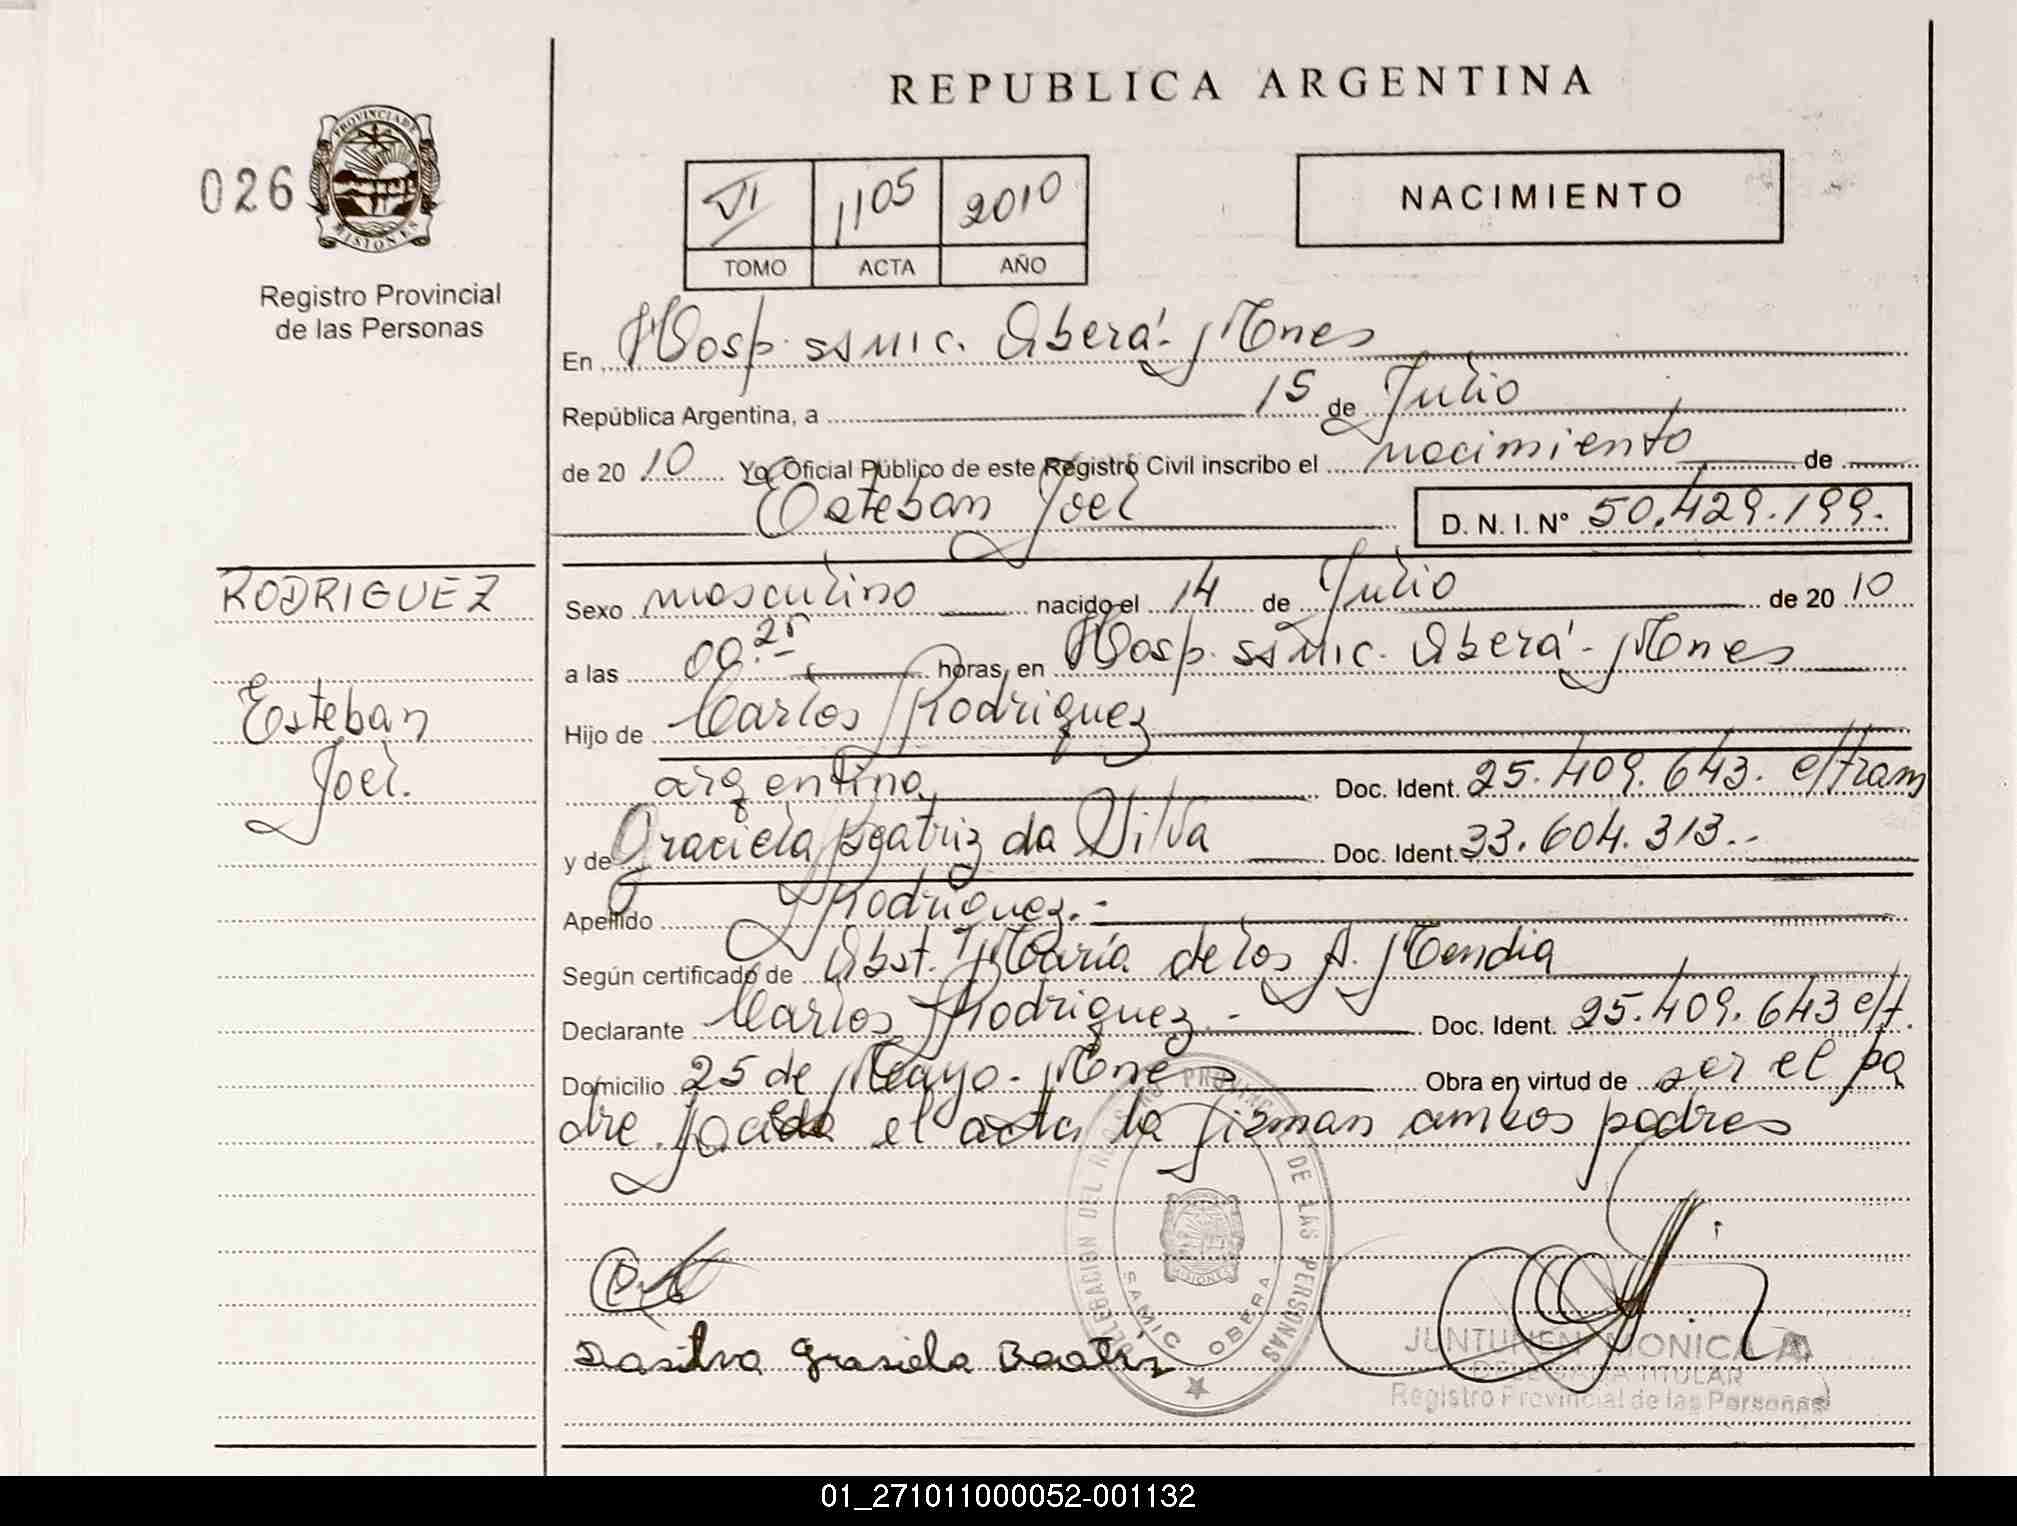 REPUBLICA ARGENTINA
026
PROVINCIA DE MISIONES
Registro Provincial
de las Personas
VI 1105 2010
TOMO ACTA AÑO
NACIMIENTO
En Hosp. SAMIC. Oberá - Mnes
República Argentina, a 15 de Julio
de 20 10 Yo, Oficial Público de este Registro Civil inscribo el nacimiento de
Esteban Joel D. N. I. N° 50.429.199.
RODRIGUEZ
Esteban
Joel.
Sexo masculino nacido el 14 de Julio de 20 10
a las 00.25 horas, en Hosp. SAMIC. Oberá - Mnes
Hijo de Carlos Rodriguez
argentino Doc. Ident. 25.409.643. e/tram
y de Graciela Beatriz da Silva Doc. Ident. 33.604.313.-
Apellido Rodriguez.-
Según certificado de Obst. María de los A. Mendia
Declarante Carlos Rodriguez.- Doc. Ident. 25.409.643 e/t.
Domicilio 25 de Mayo - Mnes Obra en virtud de ser el pa
dre. el acta la firman ambos padres
DELEGACION DEL REGISTRO PROVINCIAL DE LAS PERSONAS
MISIONES
SAMIC OBERA
Dasilva Grasiela Beatriz
JUNTUNEN MONICA A
DELEGADA TITULAR
Registro Provincial de las Personas
01_271011000052-001132